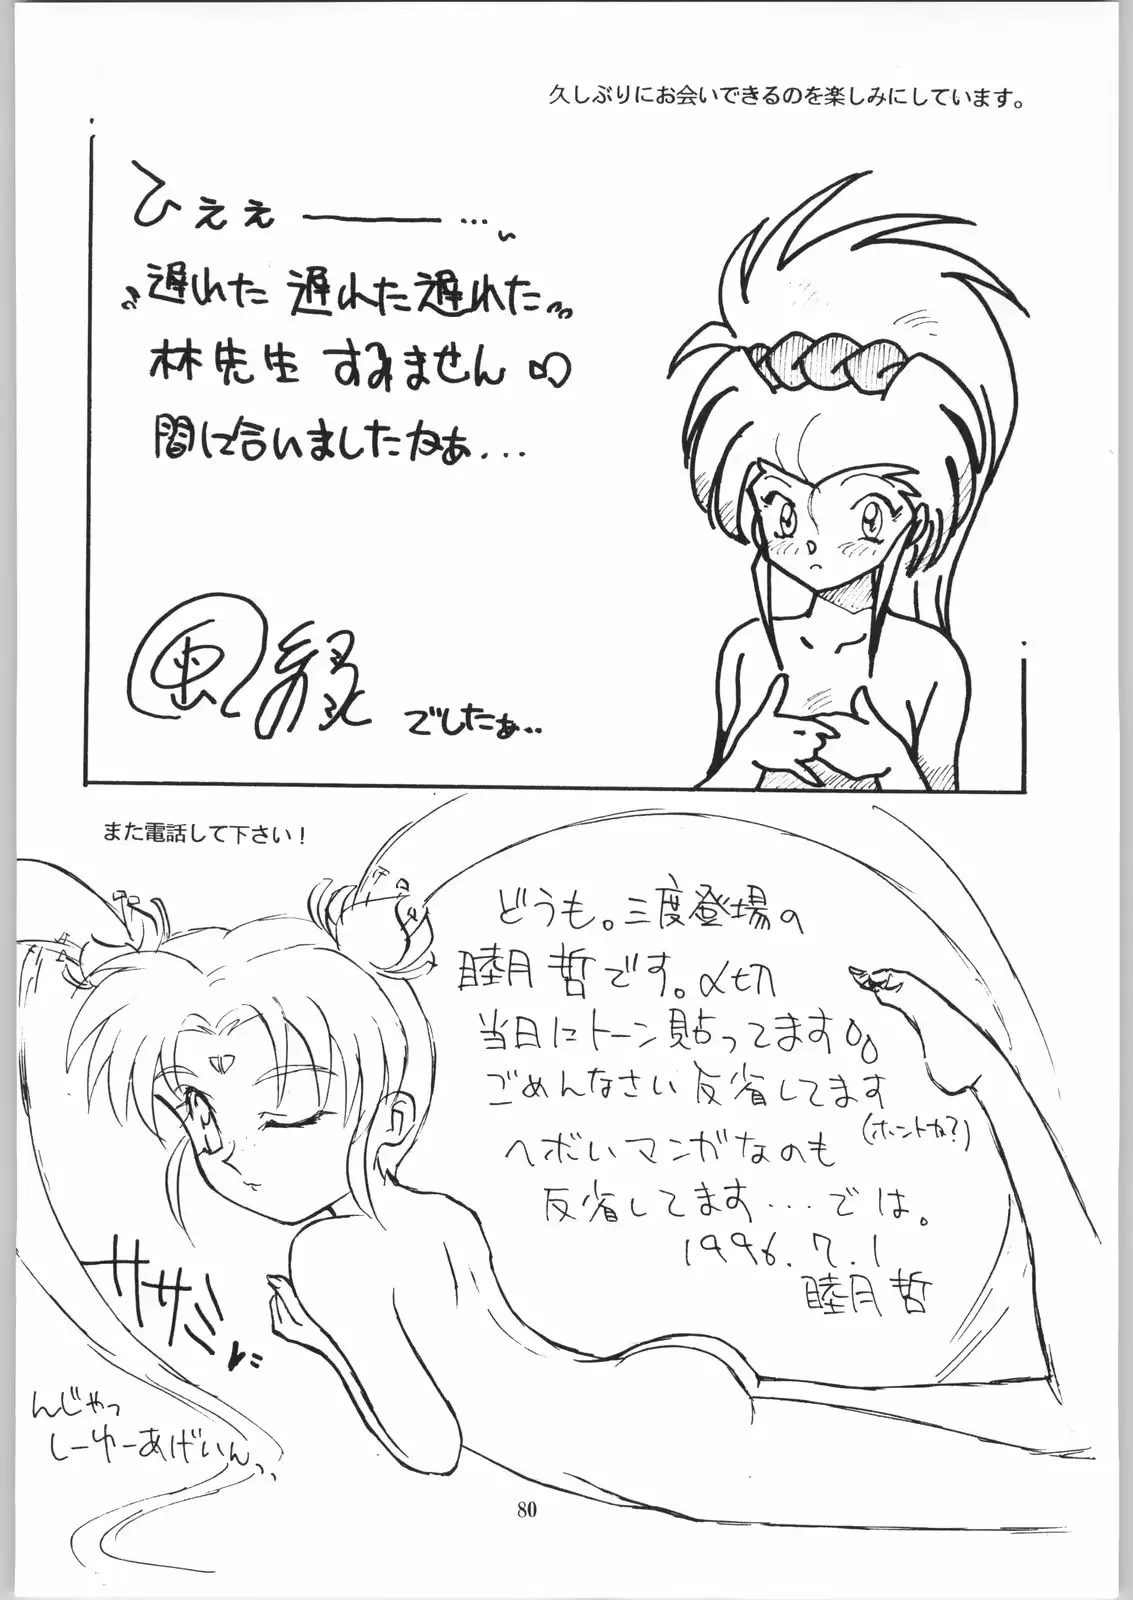 久しぶりにお会いできるのを楽しみにしています。
ひぇぇ────…
遅れた 遅れた 遅れた
林先生 すみません
間に合いましたねぁ...
でしたぁ..
また電話して下さい！
どうも。三度登場の
睦月 哲です。〆切
当日にトーン貼ってます
ごめんなさい 反省してます
(ホントか?)
ヘボいマンガなのも
反省してます...では。
1996.7.1
睦月 哲
ササミ
んじゃっ
しーゆーあげいん
80